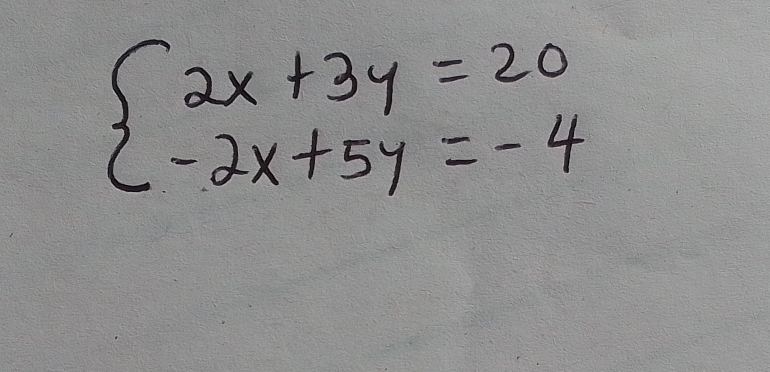 2x + 3y = 20
-2x + 5y = -4